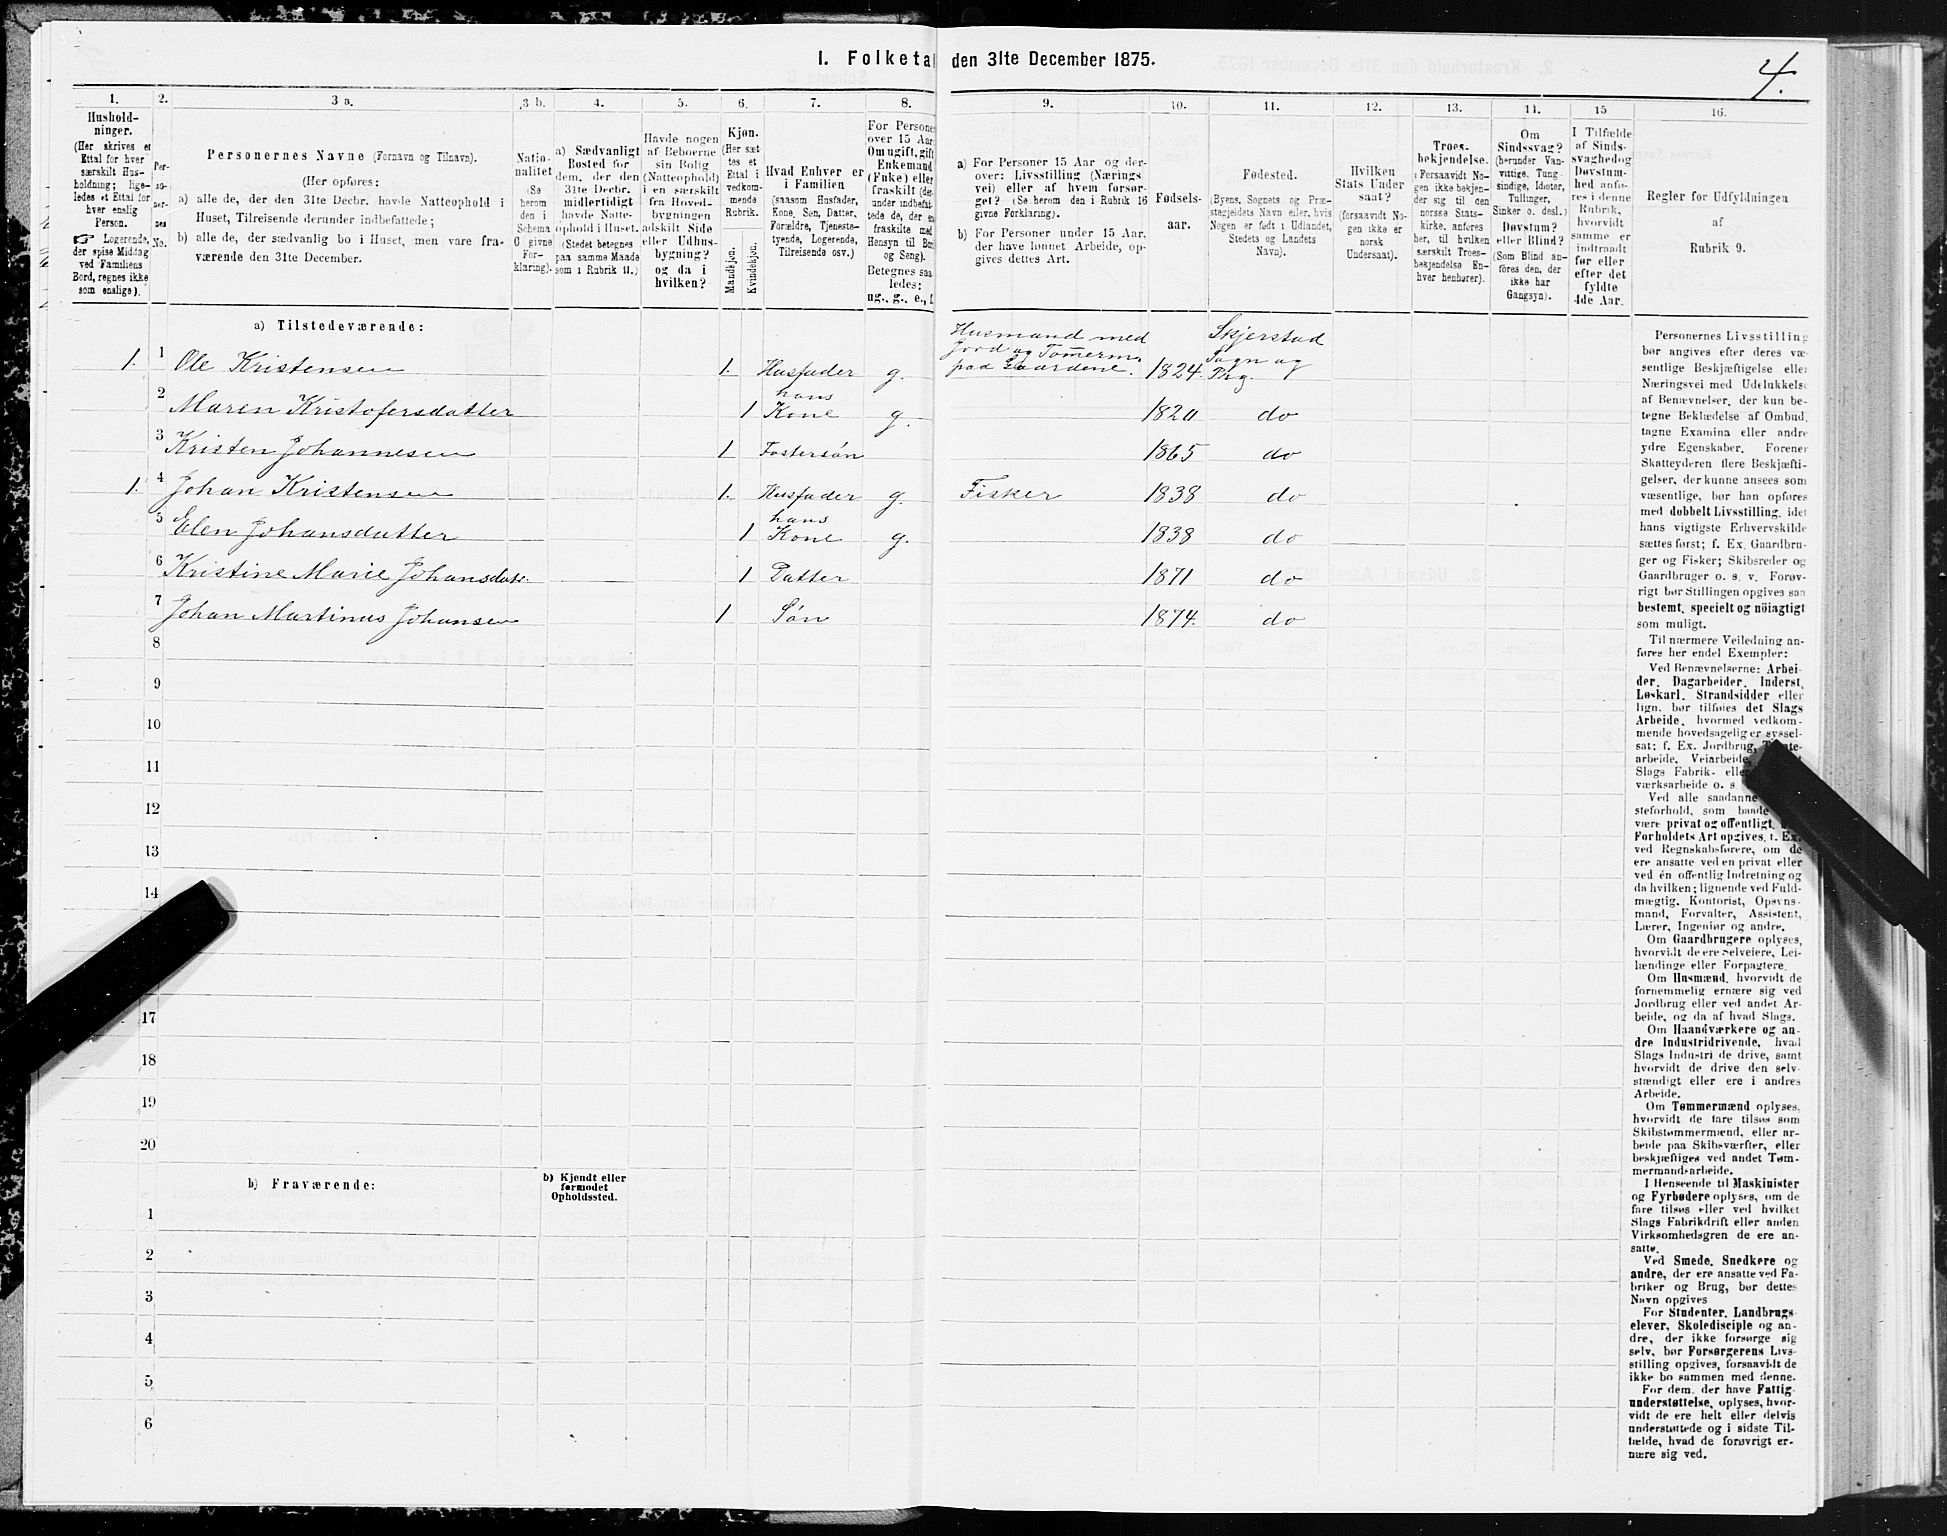 I. Folketal den 31te December 1875.
4.
1.
Hushold-
ninger.
(Her skrives et
Ettal for hver
særskilt Hus-
holdning; lige-
ledes et Ettal for
hver enslig
Person.
☞ Logerende,
der spise Middag
ved Familiens
Bord, regnes ikke
som enslige).
2.
Per-
so-
ner-
nes
No.
3 a.
Personernes Navne (Fornavn og Tilnavn).
(Her opføres:
a) alle de, der den 31te Decbr. havde Natteophold i
Huset, Tilreisende derunder indbefattede;
b) alle de, der sædvanlig bo i Huset, men vare fra-
værende den 31te December.
3 b.
Natio-
nalitet
(Se
herom
den i
Schema
C givne
For-
klaring).
4.
a) Sædvanligt
Bosted for
dem, der den
31te Decbr.
midlertidigt
havde Natte-
ophold i Huset.
(Stedet betegnes
paa samme Maade
som i Rubrik 11.)
5.
Havde nogen
af Beboerne
sin Bolig
(Natteophold)
i en særskilt
fra Hoved-
bygningen
adskilt Side
eller Udhus-
bygning?
og da i
hvilken?
6.
Kjøn.
(Her sæt-
tes et
Ettal i
vedkom-
mende
Rubrik.
Mandkjøn.
Kvindekjøn.
7.
Hvad Enhver er
i Familien
(saasom Husfader,
Kone, Søn, Datter,
Forældre, Tjeneste-
tyende, Logerende,
Tilreisende osv.)
8.
For Personer
over 15 Aar:
Om ugift, gift
Enkemand
(Enke) eller
fraskilt (der-
under indbefat-
tede de, der ere
fraskilte med
Hensyn til Bord
og Seng).
Betegnes saa-
ledes:
ug., g., e., f.
9.
a) For Personer 15 Aar og der-
over: Livsstilling (Nærings-
vei) eller af hvem forsør-
get? (Se herom den i Rubrik 16
givne Forklaring).
b) For Personer under 15 Aar,
der have lønnet Arbeide, op-
gives dettes Art.
10.
Fødsels-
aar.
11.
Fødested.
(Byens, Sognets og Præ-
stegjeldets Navn eller, hvis
Nogen er født i Udlandet,
Stedets og Landets
Navn).
12.
Hvilken
Stats Under-
saat?
(forsaavidt No-
gen ikke er
norsk
Undersaat).
13.
Troes-
bekjendelse.
(Forsaavidt No-
gen ikke bekjen-
der sig til den
norske Stats-
kirke, anføres
her, til hvilken
særskilt Troes-
bekjendelse En-
hver henhører).
14.
Om
Sindssvag?
(herunder Van-
vittige, Tung-
sindige, Idioter,
Tullinger,
Sinker o. desl.)
Døvstum?
eller Blind?
(Som Blind an-
føres den, der
ikke har
Gangsyn).
15
I Tilfælde
af Sinds-
svaghed og
Døvstum-
hed anfø-
res i denne
Rubrik,
hvorvidt
samme er
indtraadt
før eller
efter det
fyldte
4de Aar.
16.
Regler for Udfyldningen
af
Rubrik 9.
a) Tilstedeværende:
1. 1 Ole Kristensen 1. Husfader g. Husmand med Jord og Tømmerm. paa Gaardene. 1824. Skjerstad Sogn og Prg.
2 Maren Kristofersdatter 1 hans Kone g. 1820 do
3 Kristen Johannesen 1 Fostersøn 1865 do
1. 4 Johan Kristensen 1. Husfader g. Fisker 1838 do
5 Elen Johansdatter 1 hans Kone g. 1838 do
6 Kristine Marie Johansdatr. 1 Datter 1871 do
7 Johan Martinus Johansen 1 Søn 1874. do
8
9
10
11
12
13
14
17
18
19
20
b) Fraværende:
b) Kjendt eller
formodet
Opholdssted.
1
2
3
4
5
6
Personernes Livsstilling
bør angives efter deres væ-
sentlige Beskjæftigelse eller
Næringsvei med Udelukkelse
af Benævnelser, der kun be-
tegne Beklædelse af Ombud,
tagne Examina eller andre
ydre Egenskaber. Forener
Skatteyderen flere Beskjæfti-
gelser, der kunne ansees som
væsentlige, bør han opføres
med dobbelt Livsstilling, idet
hans vigtigste Erhvervskilde
sættes først; f. Ex. Gaardbru-
ger og Fisker; Skibsreder og
Gaardbruger o. s. v. Forøv-
rigt bør Stillingen opgives saa
bestemt, specielt og nøiagtigt
som muligt.
Til nærmere Veiledning an-
føres her endel Exempler:
Ved Benævnelserne: Arbei-
der, Dagarbeider, Inderst,
Løskarl, Strandsidder eller
lign. bør tilføies det Slags
Arbeide, hvormed vedkom-
mende hovedsagelig er syssel-
sat; f. Ex. Jordbrug,
arbeide, Veiarbeide,
Slags Fabrik- eller
værksarbeide o. s
Ved alle saadanne
steforhold, som baade
være privat og offentligt,
Forholdets Art opgives, t. Ex.
ved Regnskabsførere, om de
ere ansatte ved en privat eller
ved én offentlig Indretning og
da hvilken; lignende ved Fuld-
mægtig, Kontorist, Opsyns-
mand, Forvalter, Assistent,
Lærer, Ingeniør og andre.
Om Gaardbrugere oplyses,
hvorvidt de ere Selveiere, Lei-
lændinge eller Forpagtere.
Om Husmænd, hvorvidt de
fornemmelig ernære sig ved
Jordbrug eller ved andet Ar-
beide, og da af hvad Slags.
Om Haandværkere og an-
dre Industridrivende, hvad
Slags Industri de drive, samt
hvorvidt de drive den selv-
stændigt eller ere i andres
Arbeide.
Om Tømmermænd oplyses,
hvorvidt de fare tilsøs som
Skibstømmermænd, eller ar-
beide paa Skibsværfter, eller
beskjæftiges ved andet Tøm-
mermandsarbeide.
I Henseende til Maskinister
og Fyrbødere oplyses, om de
fare tilsøs eller ved hvilket
Slags Fabrikdrift eller anden
Virksomhedsgren de ere an-
satte.
Ved Smede, Snedkere og
andre, der ere ansatte ved Fa-
briker og Brug, bør dettes
Navn opgives
For Studenter, Landbrugs-
elever, Skoledisciple og an-
dre, der ikke forsørge sig
selv, bør Forsørgerens Livs-
stilling opgives, forsaavidt de
ikke bo sammen med denne.
For dem, der have Fattig-
understøttelse, oplyses, hvor-
vidt de ere helt eller delvis
understøttede og i sidste Til-
fælde, hvad de forøvrigt er-
nære sig ved.